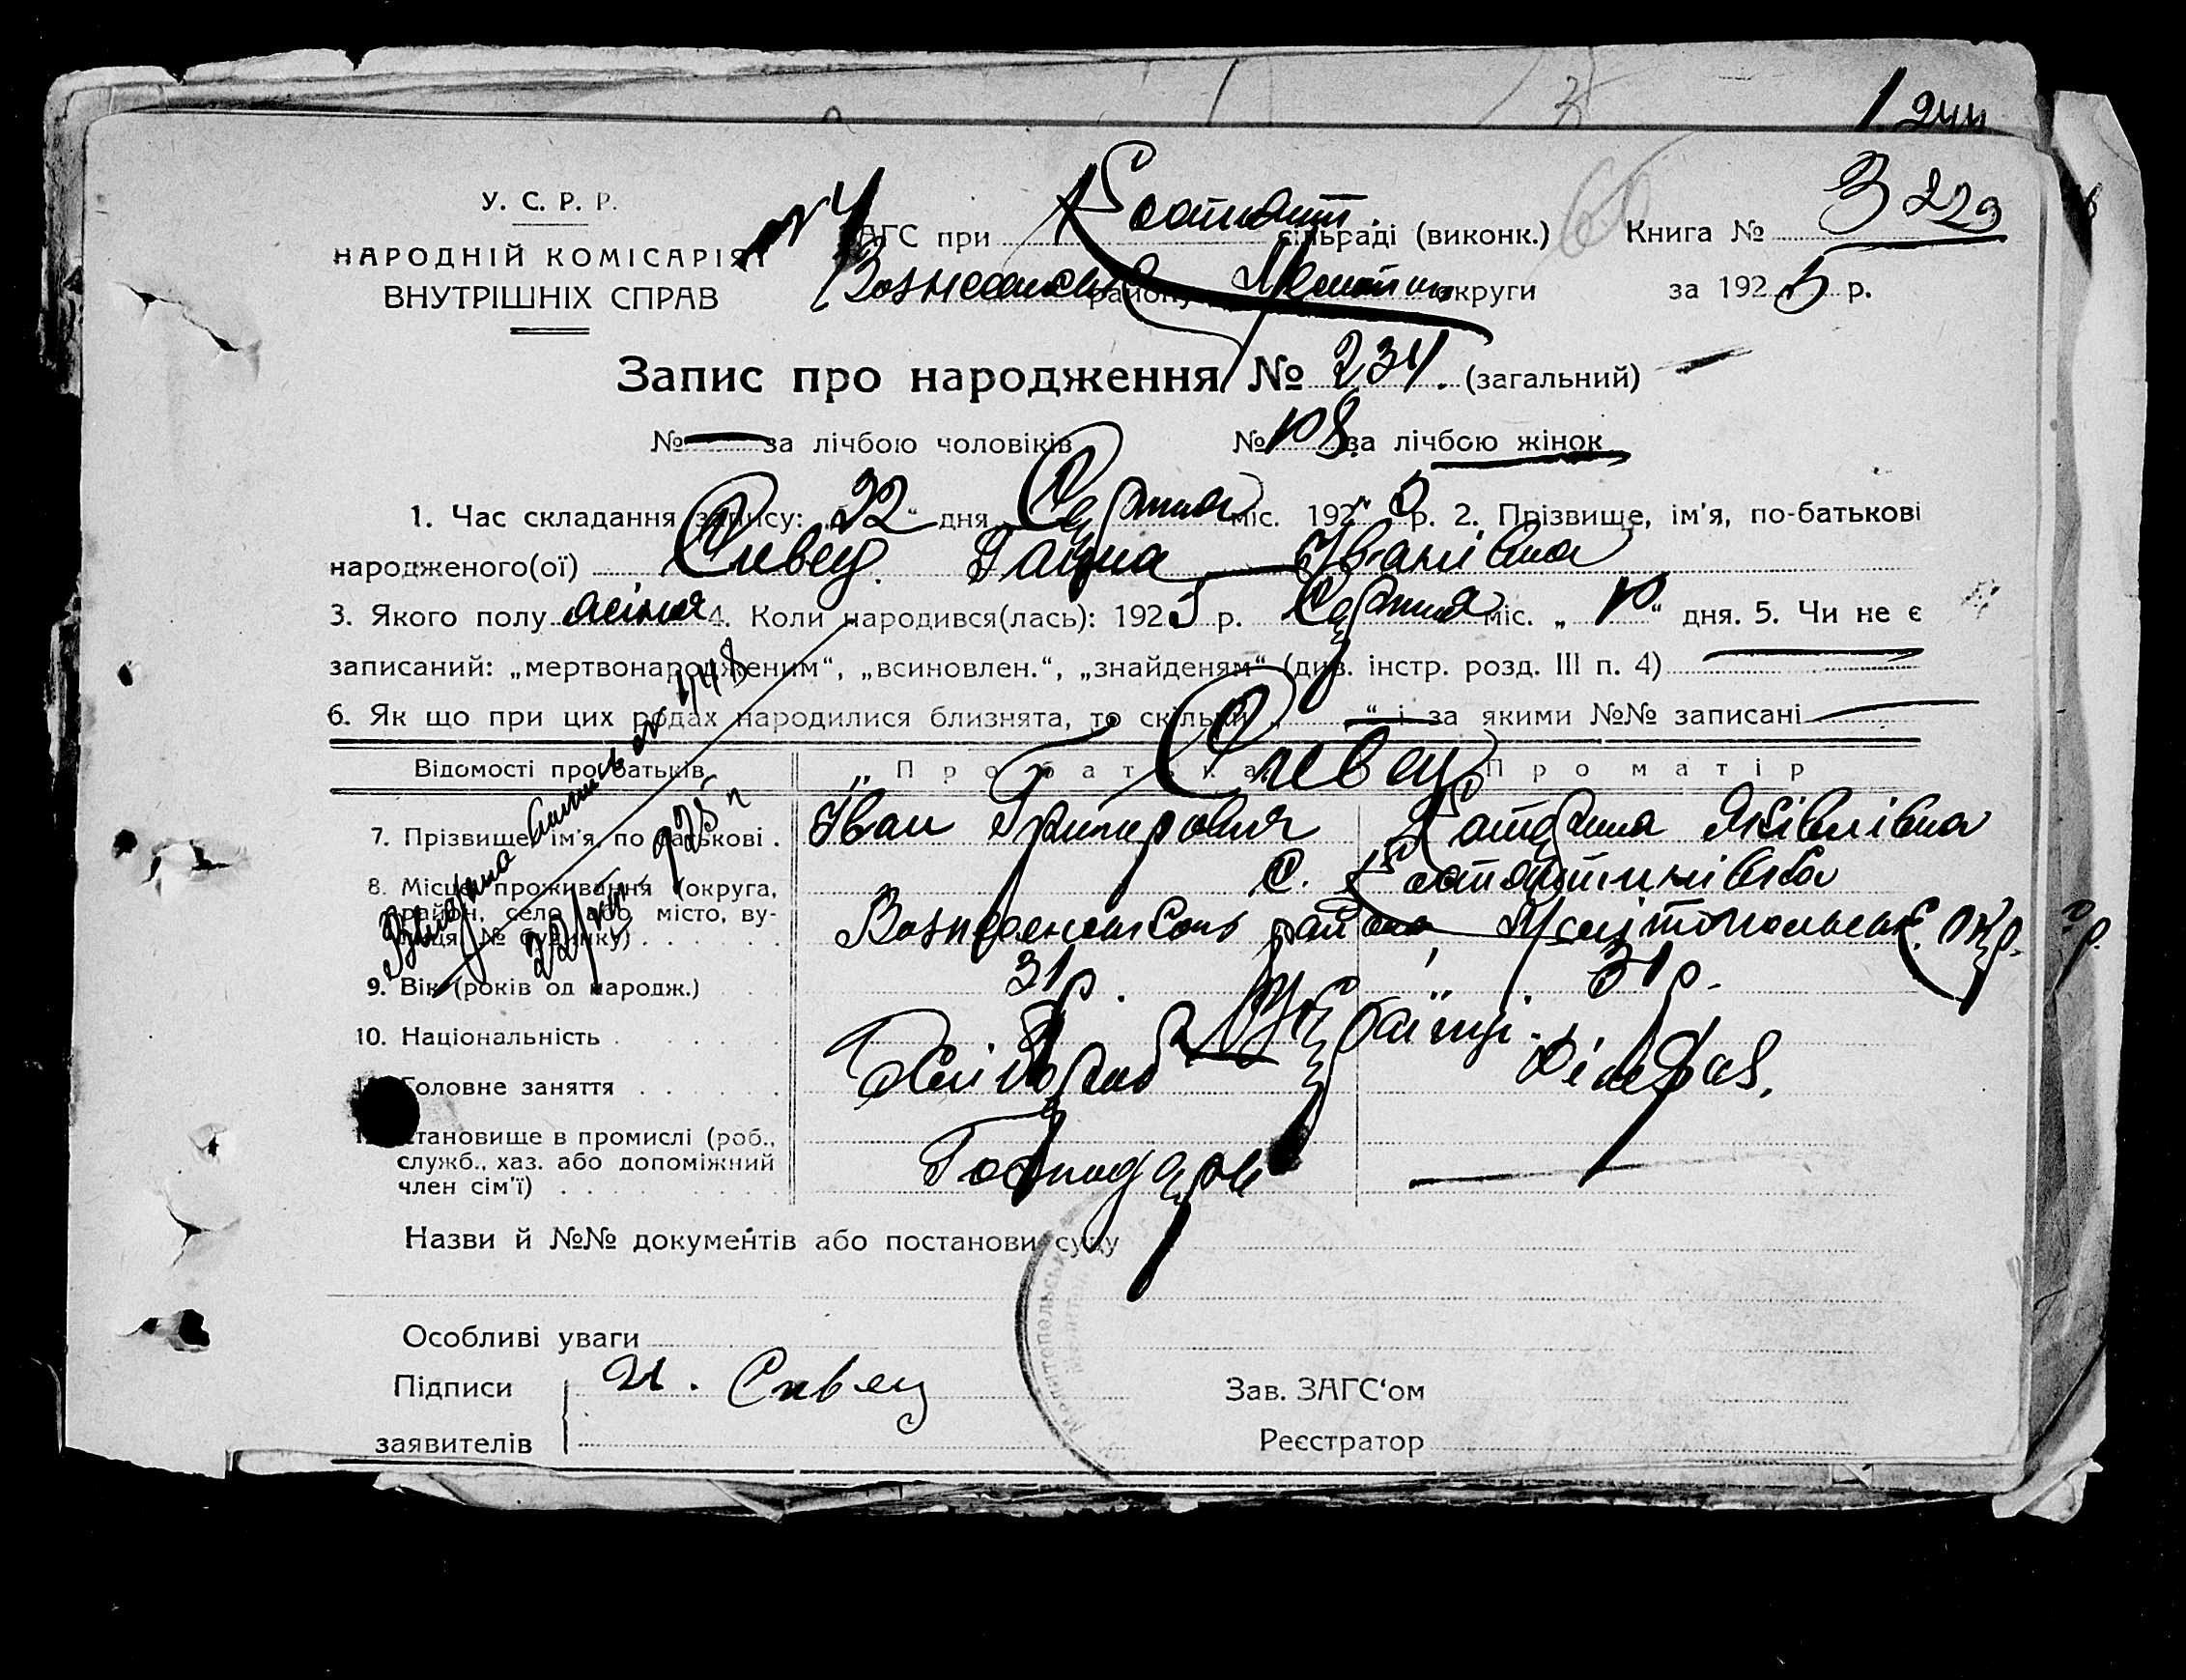 1 244
У. С. Р. Р.
НАРОДНІЙ КОМІСАРІЯТ
ВНУТРІШНІХ СПРАВ
ЗАГС при Костянт. сільраді (виконк.) Книга № 3 229
Вознесенськ. району Мелітоп. округи за 1925 р.
Запис про народження № 234. (загальний)
№ — за лічбою чоловіків № 108 за лічбою жінок
1. Час складання запису: „22“ дня Серпня міс. 1925 р. 2. Прізвище, ім'я, по-батькові
народженого(ої) Сивец. Ганна Іванівна
3. Якого полу жіноч. 4. Коли народився(лась): 1925 р. Серпня міс. „10“ дня. 5. Чи не є
записаний: „мертвонародженим“, „всиновлен.“, „знайденям“ (див. інстр. розд. III п. 4)
6. Як що при цих родах народилися близнята, то скільки „ “ і за якими №№ записані
Сивец
Відомості про батьків Про батька Про матір
7. Прізвище, ім'я, по батькові . Іван Григорович Катерина Яківлівна
8. Місце проживання (округа, район, село або місто, вулиця, № будинку) с. Костянтинівка
Вознесенського району, Мелітопольськ. окр.
9. Вік (років од народж.) 31 р. 31 р.
10. Національність Українці.
11. Головне заняття Хлібороб
12. Становище в промислі (роб., служб., хаз. або допоміжний член сім'ї) Господарь —
Назви й №№ документів або постанови суду
Особливі уваги
Підписи И. Сивец Зав. ЗАГС'ом
заявителів Реєстратор